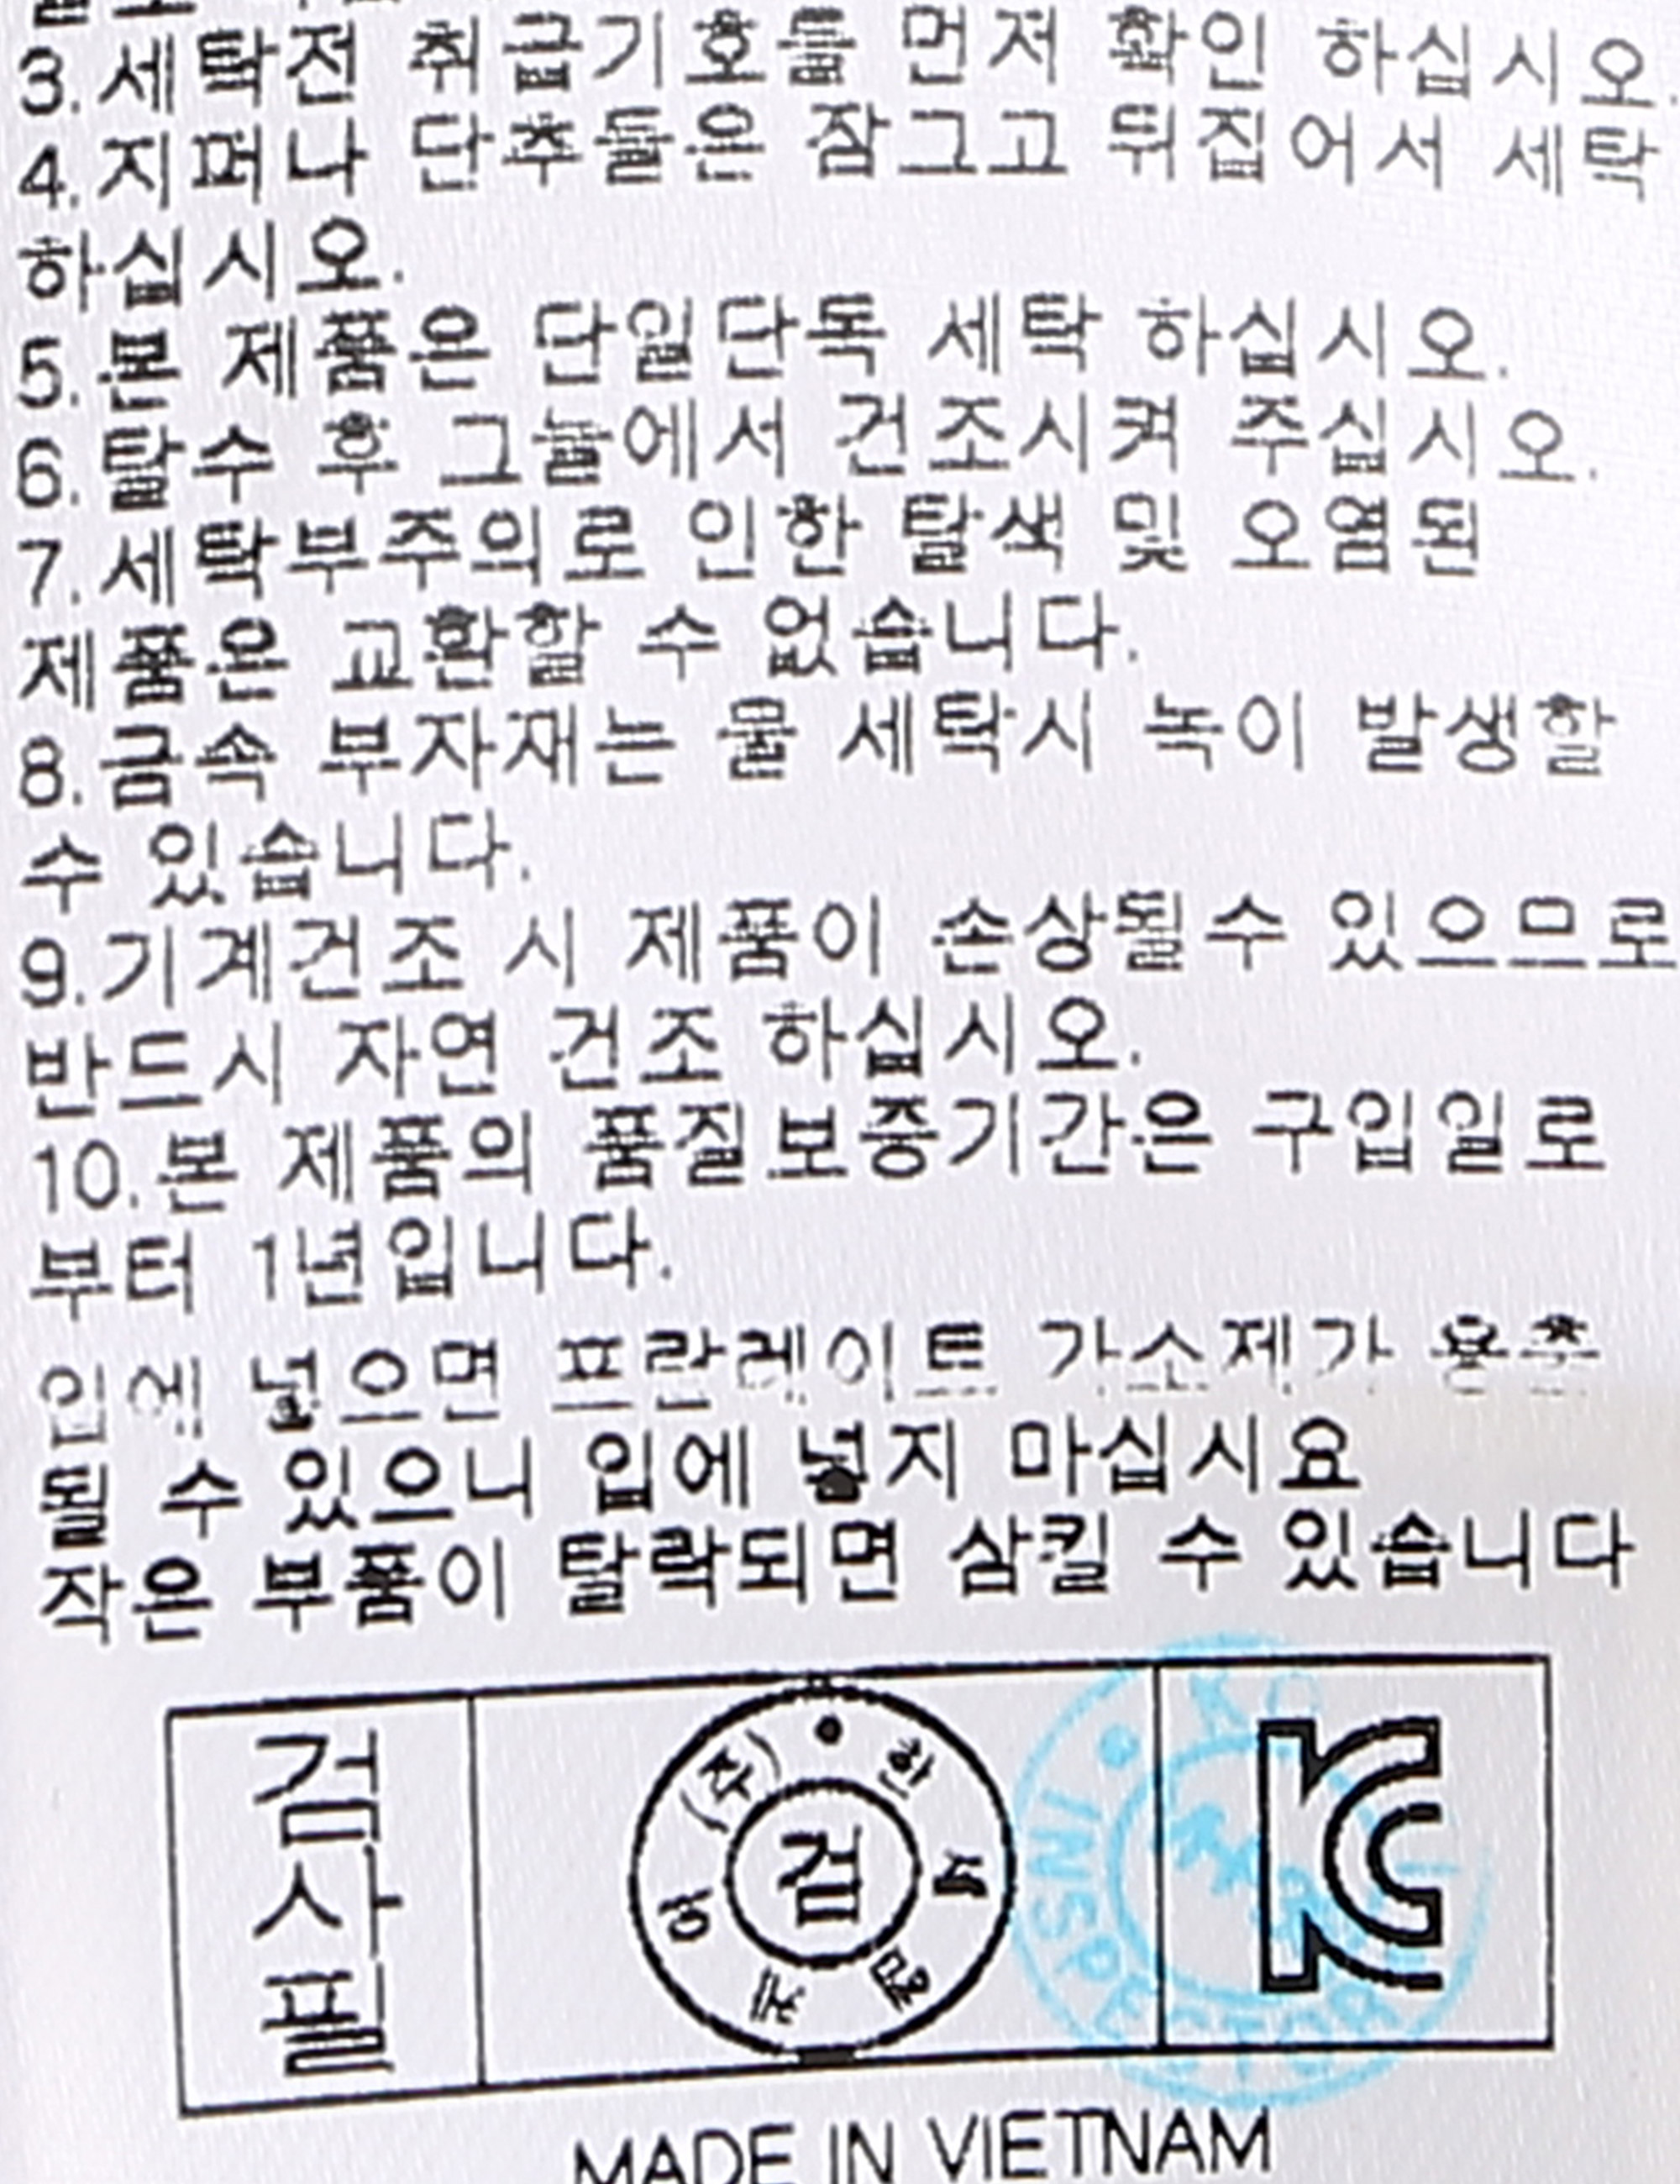 3.세탁전 취급기호를 먼저 확인 하십시오.
4.지퍼나 단추들은 잠그고 뒤집어서 세탁
하십시오.
5.본 제품은 단일단독 세탁 하십시오.
6.탈수 후 그늘에서 건조시켜 주십시오.
7.세탁부주의로 인한 탈색 및 오염된
제품은 교환할 수 없습니다.
8.금속 부자재는 물 세탁시 녹이 발생할
수 있습니다.
9.기계건조 시 제품이 손상될수 있으므로
반드시 자연 건조 하십시오.
10.본 제품의 품질보증기간은 구입일로
부터 1년입니다.
입에 넣으면 프탈레이트 가소제가 용출
될 수 있으니 입에 넣지 마십시요
작은 부품이 탈락되면 삼킬 수 있습니다
검사필
(주)한세엠케이
검
KC
INSPECTOR
MADE IN VIETNAM